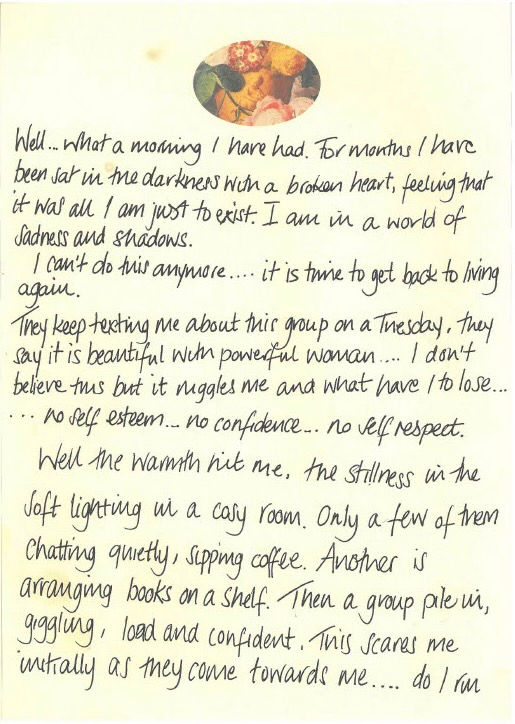 Well... what a morning I have had. For months I have
been sat in the darkness with a broken heart, feeling that
it was all I am just to exist. I am in a world of
sadness and shadows.
I can't do this anymore.... it is time to get back to living
again.
They keep texting me about this group on a Tuesday, they
say it is beautiful with powerful woman.... I don't
believe this but it niggles me and what have I to lose...
... no self esteem... no confidence... no self respect.
Well the warmth hit me, the stillness in the
soft lighting in a cosy room. Only a few of them
chatting quietly, sipping coffee. Another is
arranging books on a shelf. Then a group pile in,
giggling, load and confident. This scares me
initially as they come towards me.... do I run